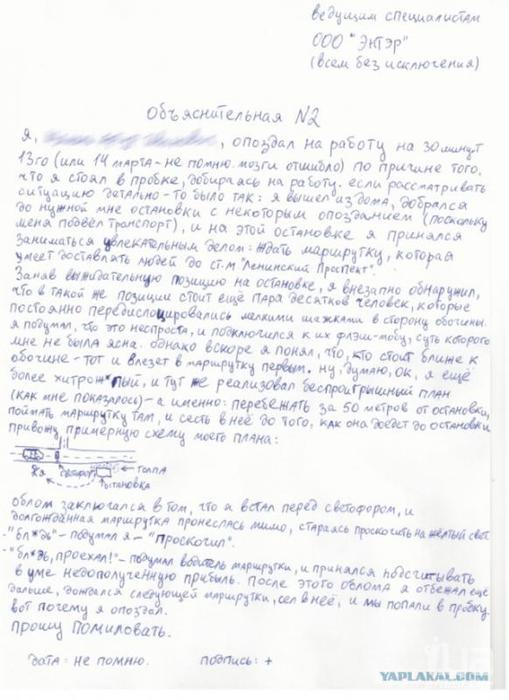 ведущим специалистам
ООО "ЭНТЭР"
(всем без исключения)
Объяснительная №2
я, , опоздал на работу на 30 минут
13го (или 14 марта - не помню. мозги отшибло) по причине того,
что я стоял в пробке, добираясь на работу. если рассматривать
ситуацию детально - то было так: я вышел из дома, добрался
до нужной мне остановки с некоторым опозданием (поскольку
меня подвёл транспорт), и на этой остановке я принялся
заниматься увлекательным делом: ждать маршрутку, которая
умеет доставлять людей до ст.м "Ленинский Проспект".
Заняв выжидательную позицию на остановке, я внезапно обнаружил,
что в такой же позиции стоит ещё пара десятков человек, которые
постоянно передислоцировались мелкими шажками в сторону обочины.
я подумал, что это неспроста, и подключился к их флэш-мобу, суть которого
мне не была ясна. однако вскоре я понял, что, кто стоит ближе к
обочине - тот и влезет в маршрутку первым. ну, думаю, ок, я ещё
более хитрож*пый, и тут же реализовал беспроигрышный план
(как мне показалось) - а именно: перебежать за 50 метров от остановки,
поймать маршрутку там, и сесть в неё до того, как она доедет до остановки
привожу примерную схему моего плана:
я светофор толпа
остановка
облом заключался в том, что я встал перед светофором, и
долгожданная маршрутка пронеслась мимо, стараясь проскочить на жёлтый свет.
- "бл*дь" - подумал я - "проскочил".
- "бл*дь, проехал!" - подумал водитель маршрутки, и принялся подсчитывать
в уме недополученную прибыль. После этого облома я отбежал ещё
дальше, дождался следующей маршрутки, сел в неё, и мы попали в пробку.
вот почему я опоздал.
прошу помиловать.
дата: не помню. подпись: +
YAPLAKAL.COM